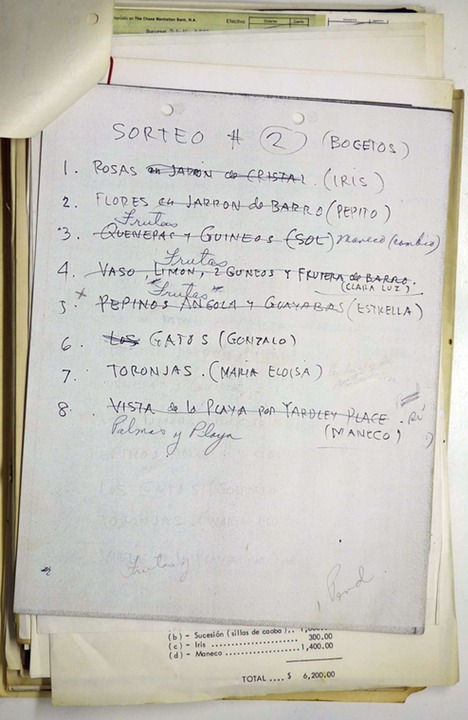 The Chase Manhattan Bank, N.A.
Efectivo
SORTEO # 2 (BOCETOS)
1. ROSAS en JARRON de CRISTAL (IRIS)
2. FLORES en JARRON de BARRO (PEPITO)
Frutas
3. QUENEPAS Y GUINEOS (SOL) Maneco (cambio)
Frutas
4. VASO, LIMON, 2 GUINEOS Y FRUTERA de BARRO.
(CLARA LUZ)
"Frutas"
x
5. PEPINOS ANGOLA Y GUAYABAS (ESTRELLA)
6. LOS GATOS (GONZALO)
7. TORONJAS. (MARIA ELOISA)
8. VISTA de la PLAYA POR YARDLEY PLACE.
Palmas y Playa
(MANECO)
Frutas y
(b) - Sucesión (sillas de caoba)..
(c) - Iris ..................... 300.00
(d) - Maneco .................. 1,400.00
TOTAL .... $ 6,200.00